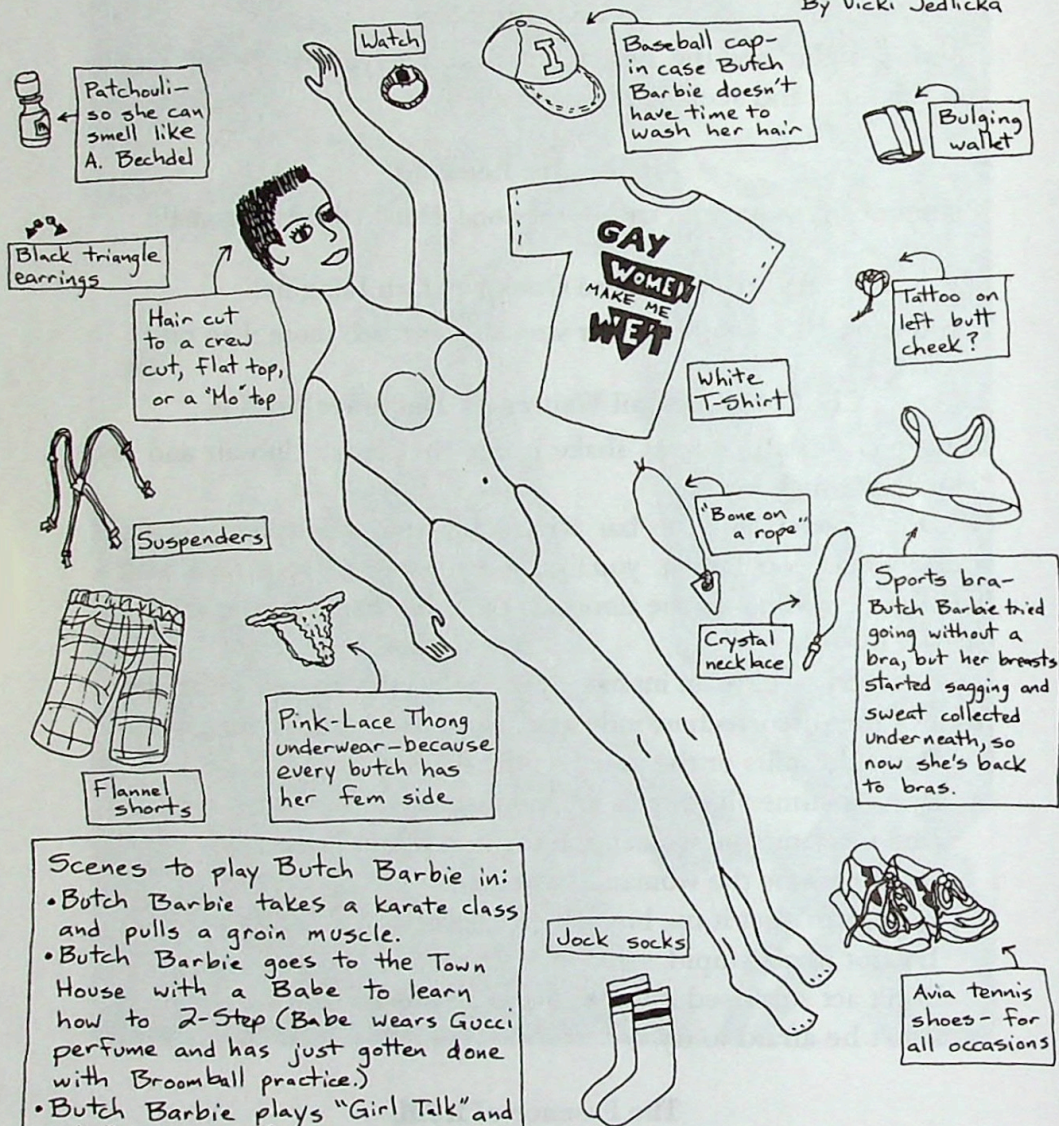 By Vicki Jedlicka
Watch
Baseball cap-
in case Butch
Barbie doesn't
have time to
wash her hair
I
Patchouli-
so she can
smell like
A. Bechdel
Bulging
wallet
Black triangle
earrings
Hair cut
to a crew
cut, flat top,
or a "Mo" top
GAY
WOMEN
MAKE ME
WET
White
T-Shirt
Tattoo on
left butt
cheek?
Suspenders
"Bone on
a rope"
Crystal
necklace
Sports bra-
Butch Barbie tried
going without a
bra, but her breasts
started sagging and
sweat collected
underneath, so
now she's back
to bras.
Flannel
shorts
Pink-Lace Thong
underwear-because
every butch has
her fem side
Scenes to play Butch Barbie in:
• Butch Barbie takes a karate class
and pulls a groin muscle.
• Butch Barbie goes to the Town
House with a Babe to learn
how to 2-Step (Babe wears Gucci
perfume and has just gotten done
with Broomball practice.)
• Butch Barbie plays "Girl Talk" and
Jock socks
Avia tennis
shoes- for
all occasions